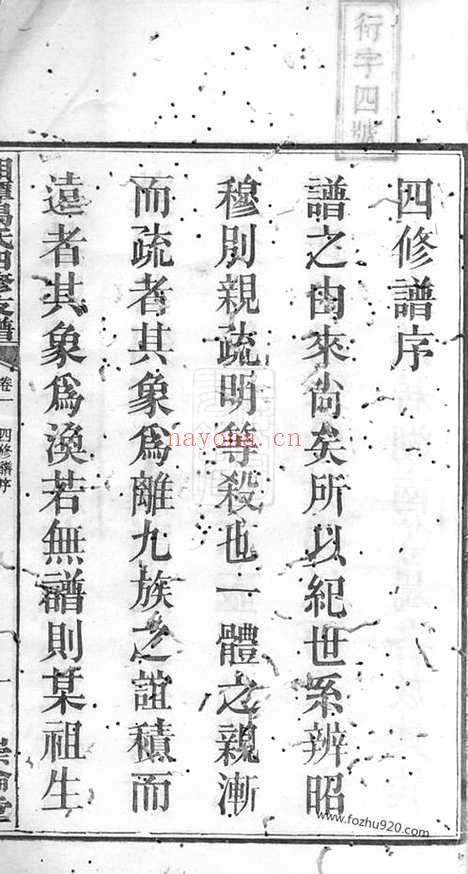 衍字四號
四修譜序
譜之由來尚矣所以紀世系辨昭
穆別親疏明等殺也一體之親漸
而疏者其象為離九族之誼積而
遠者其象為渙若無譜則某祖生
湘潭馮氏四修支譜
卷一 四修譜序
一
nayona.cn
www.fozhu920.com